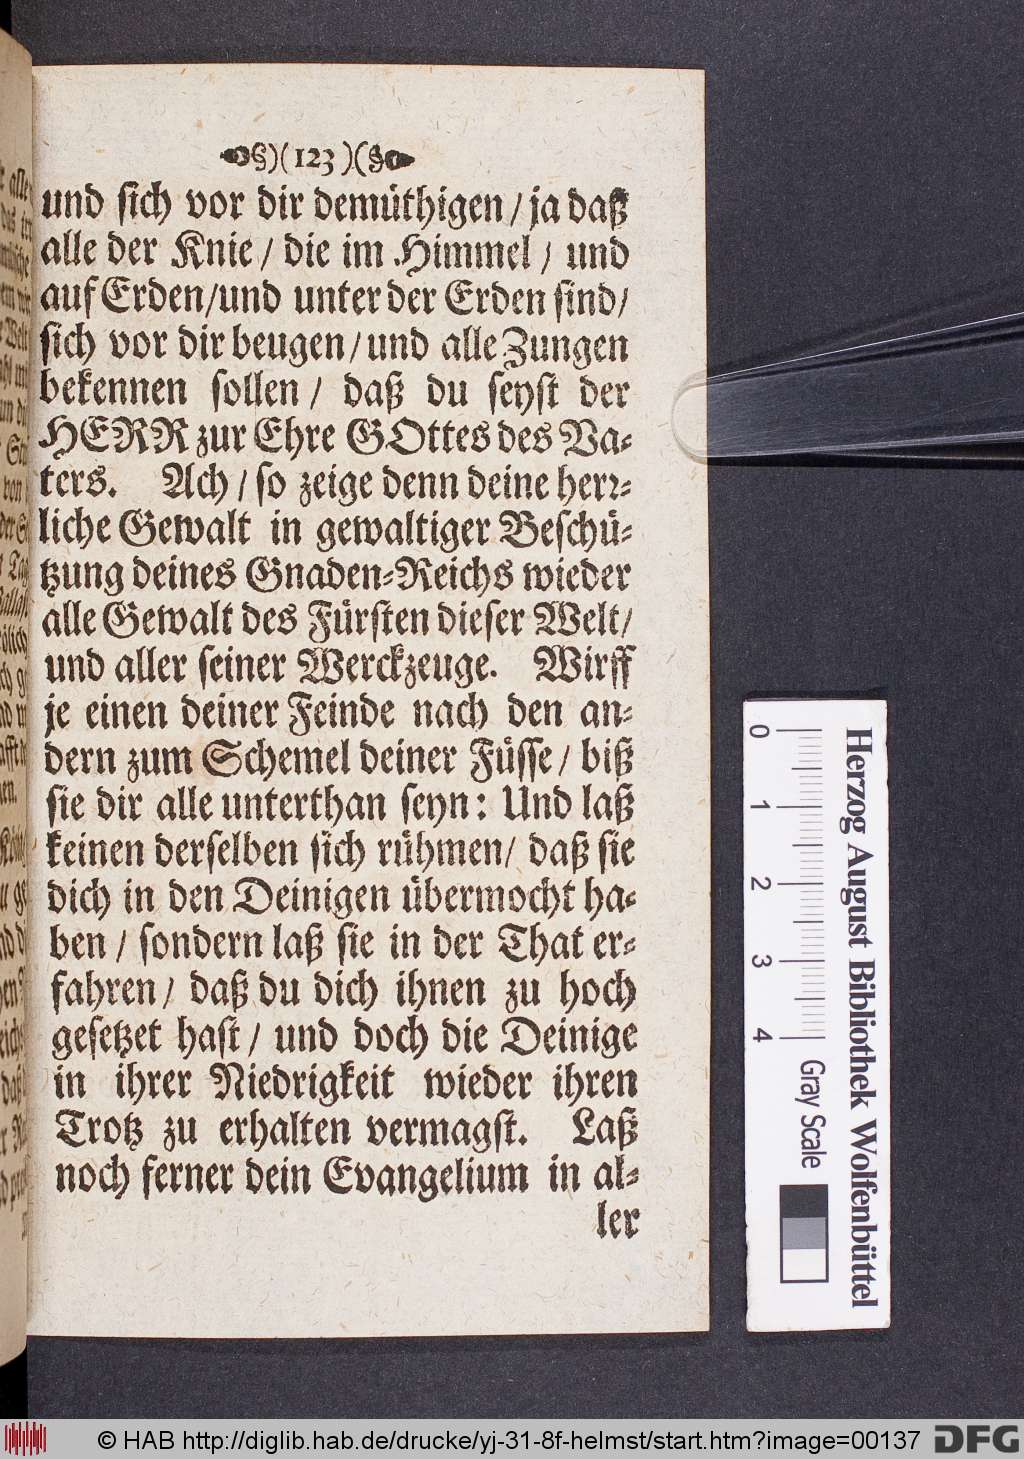 §)( 123 )(§
und sich vor dir demüthigen / ja daß
alle der Knie / die im Himmel / und
auf Erden / und unter der Erden sind /
sich vor dir beugen / und alle Zungen
bekennen sollen / daß du seyst der
HERR zur Ehre GOttes des Va-
ters. Ach / so zeige denn deine herr-
liche Gewalt in gewaltiger Beschü-
tzung deines Gnaden-Reichs wieder
alle Gewalt des Fürsten dieser Welt /
und aller seiner Werckzeuge. Wirff
je einen deiner Feinde nach den an-
dern zum Schemel deiner Füsse / biß
sie dir alle unterthan seyn: Und laß
keinen derselben sich rühmen / daß sie
dich in den Deinigen übermocht ha-
ben / sondern laß sie in der That er-
fahren / daß du dich ihnen zu hoch
gesetzet hast / und doch die Deinige
in ihrer Niedrigkeit wieder ihren
Trotz zu erhalten vermagst. Laß
noch ferner dein Evangelium in al-
ler
Herzog August Bibliothek Wolfenbüttel
0 1 2 3 4
Gray Scale
© HAB http://diglib.hab.de/drucke/yj-31-8f-helmst/start.htm?image=00137
DFG